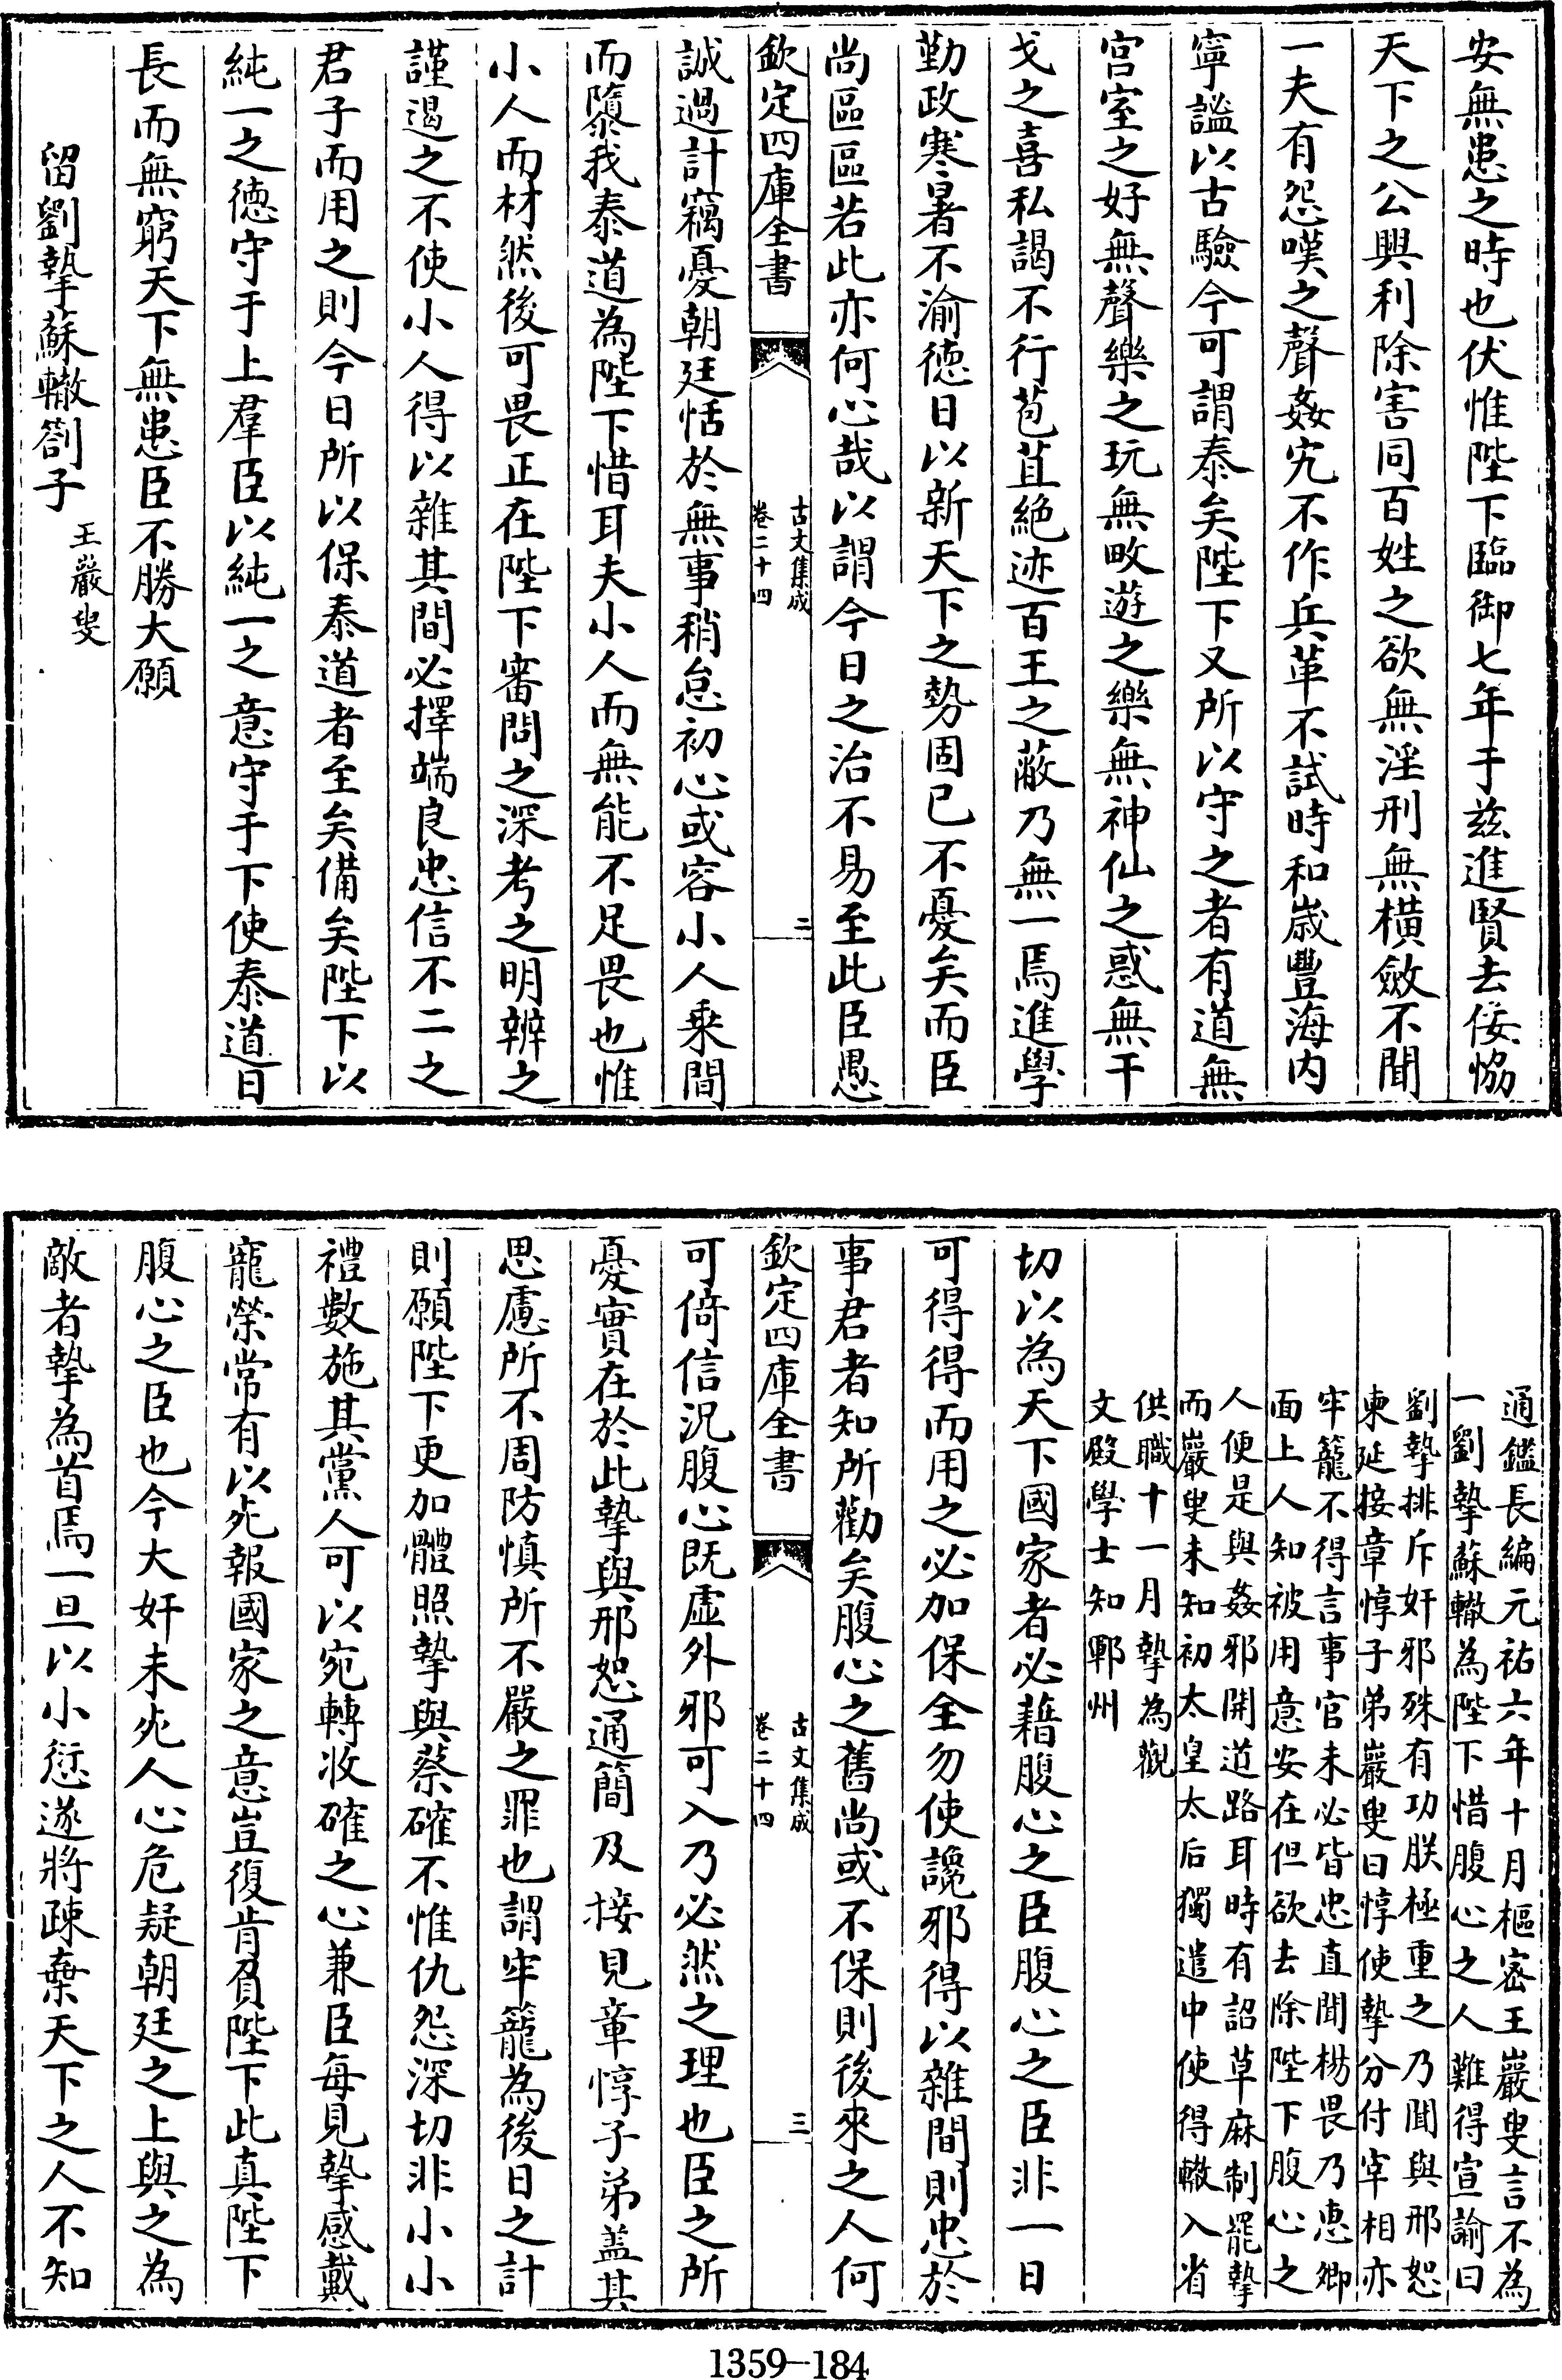 安無患之時也伏惟陛下臨御七年于兹進賢去佞恊
天下之公興利除害同百姓之欲無淫刑無橫斂不聞
一夫有怨嘆之聲姦宄不作兵革不試時和嵗豐海内
寧謐以古驗今可謂泰矣陛下又所以守之者有道無
宫室之好無聲樂之玩無畋遊之樂無神仙之惑無干
戈之喜私謁不行苞苴絶迹百王之蔽乃無一焉進學
勤政寒暑不渝徳日以新天下之勢固已不憂矣而臣
尚區區若此亦何心哉以謂今日之治不易至此臣愚
欽定四庫全書
古文集成
卷二十四
二
誠過計竊憂朝廷恬於無事稍怠初心或容小人乘間
而隳我泰道為陛下惜耳夫小人而無能不足畏也惟
小人而材然後可畏正在陛下審問之深考之明辨之
謹遏之不使小人得以雜其間必擇端良忠信不二之
君子而用之則今日所以保泰道者至矣備矣陛下以
純一之徳守于上羣臣以純一之意守于下使泰道日
長而無窮天下無患臣不勝大願
留劉摯蘇轍劄子
王巖叟
通鑑長編元祐六年十月樞宻王巖叟言不為
一劉摯蘇轍為陛下惜腹心之人難得宣諭曰
劉摯排斥奸邪殊有功朕極重之乃聞與邢恕
柬延接章惇子弟巖叟曰惇使摯分付宰相亦
牢籠不得言事官未必皆忠直聞楊畏乃惠卿
面上人知被用意安在但欲去除陛下腹心之
人便是與姦邪開道路耳時有詔草麻制罷摯
而巖叟未知初太皇太后獨遣中使得轍入省
供職十一月摯為觀
文殿學士知鄆州
切以為天下國家者必藉腹心之臣腹心之臣非一日
可得得而用之必加保全勿使讒邪得以雜間則忠於
事君者知所勸矣腹心之舊尚或不保則後來之人何
欽定四庫全書
古文集成
卷二十四
三
可倚信況腹心既虚外邪可入乃必然之理也臣之所
憂實在於此摯與邢恕通簡及接見章惇子弟盖其
思慮所不周防慎所不嚴之罪也謂牢籠為後日之計
則願陛下更加體照摯與蔡確不惟仇怨深切非小小
禮數施其黨人可以宛轉收確之心兼臣每見摯感戴
寵榮常有以死報國家之意豈復肯負陛下此真陛下
腹心之臣也今大奸未死人心危疑朝廷之上與之為
敵者摯為首焉一旦以小愆遂將疎棄天下之人不知
1359-184